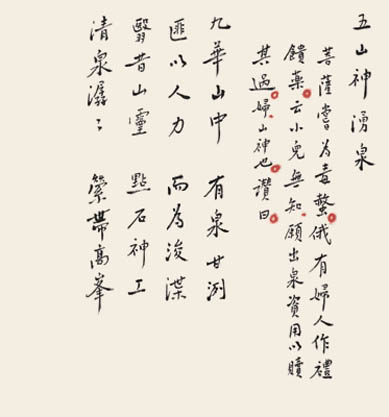 五山神湧泉
菩薩嘗為毒螫俄有婦人作禮
饋藥云小兒無知願出泉資用以贖
其過婦山神也讚曰
九華山中　有泉甘洌
匪以人力　而為浚渫
翳昔山靈　點石神工
清泉潺潺　縈帶高峯